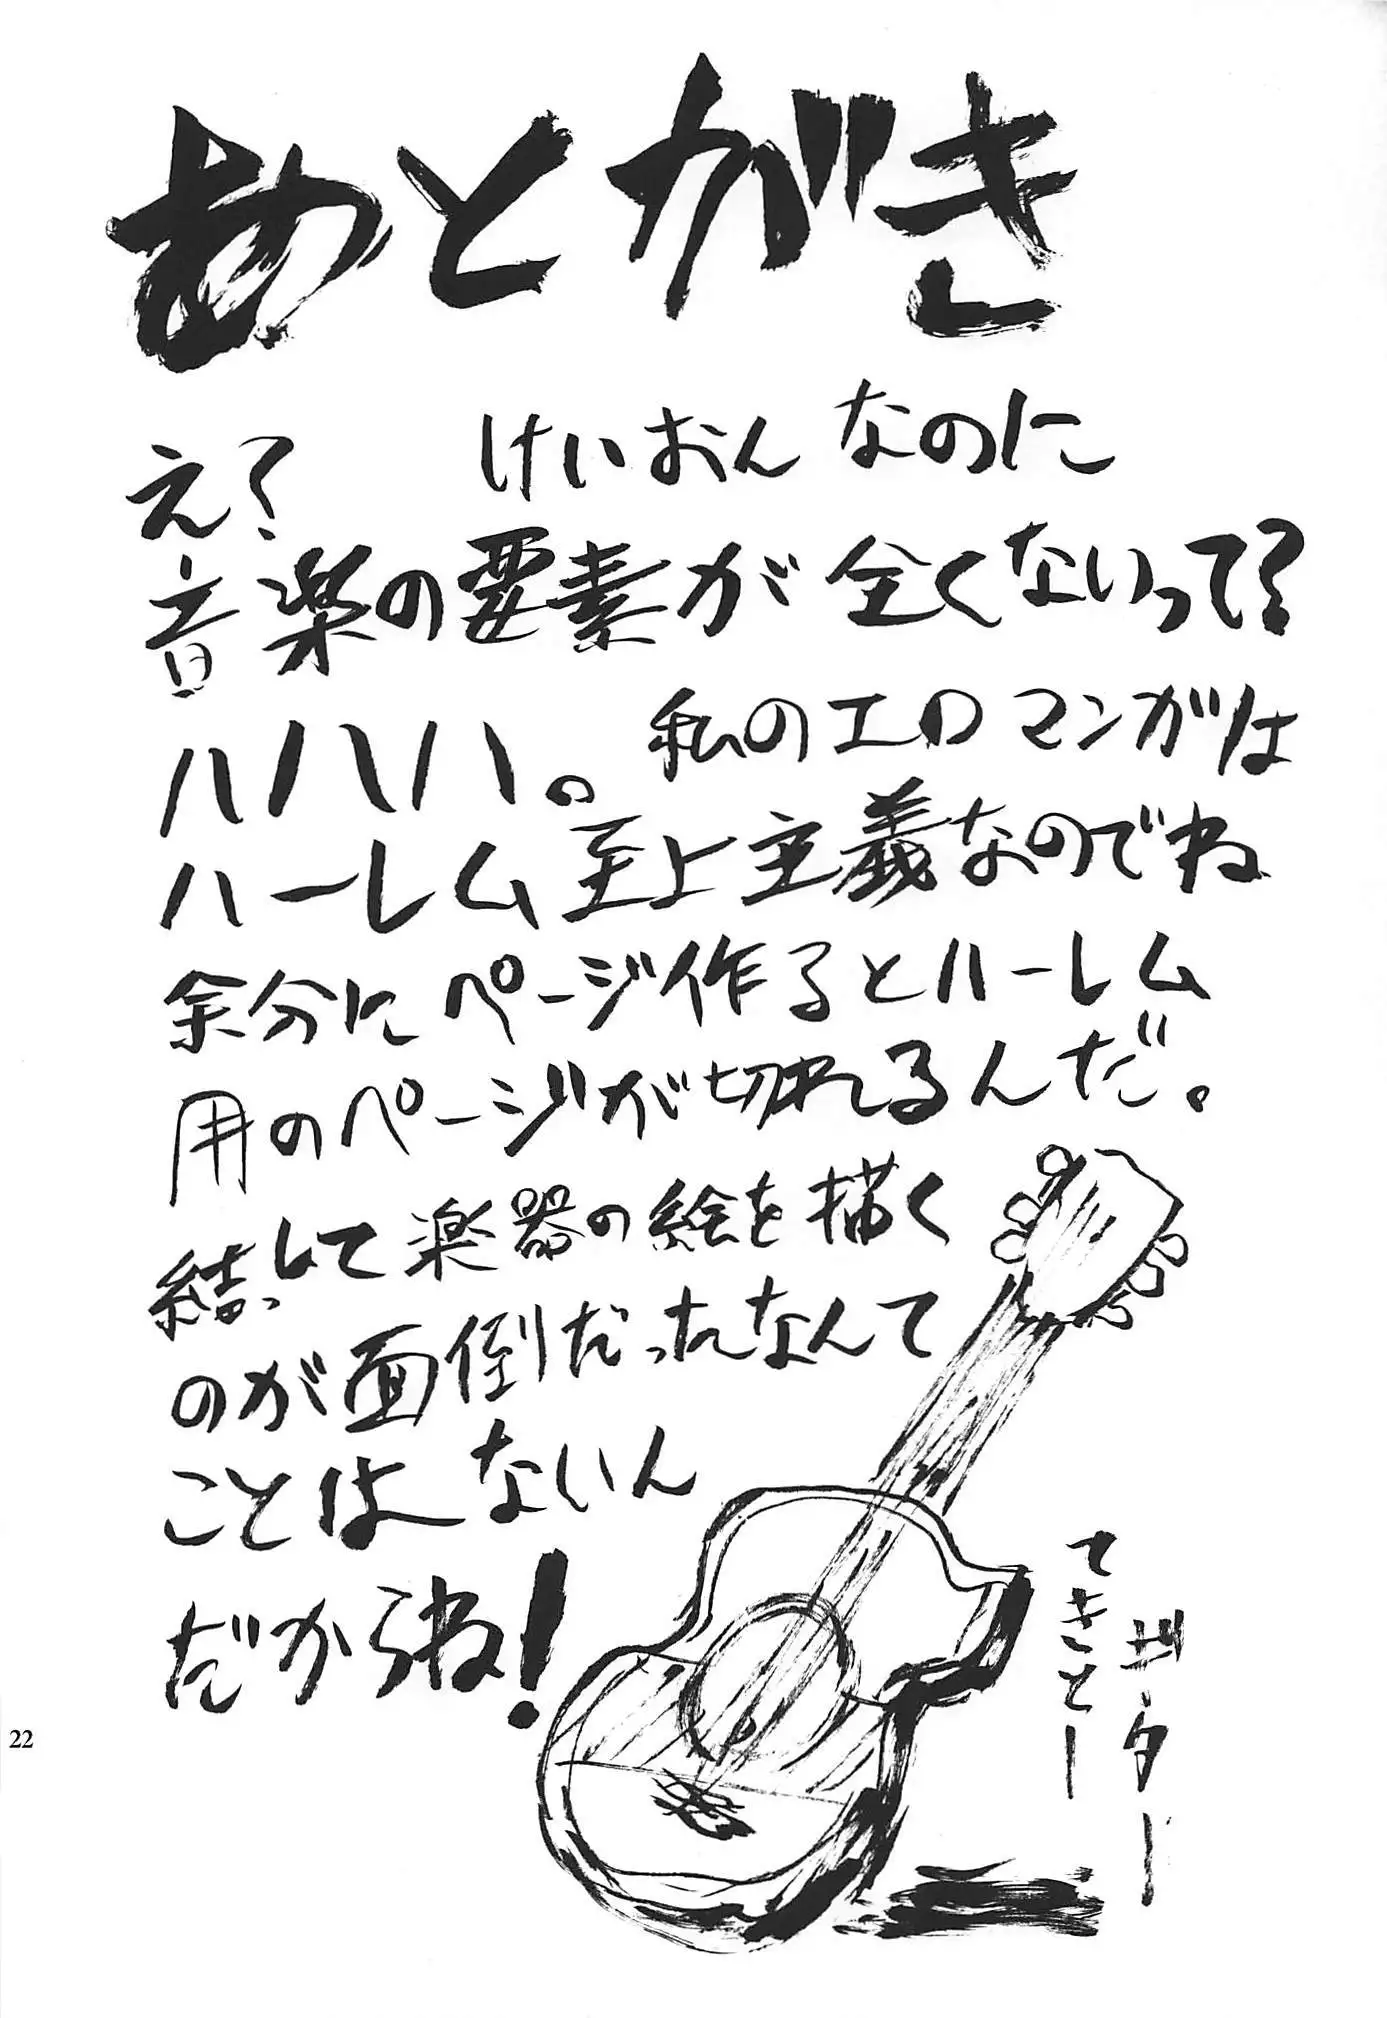 あとがき
え? けいおんなのに
音楽の要素が全くないって?
ハハハ。私のエロマンガは
ハーレム至上主義なのでね
余分にページ作るとハーレム
用のページが切れるんだ。
結して楽器の絵を描く
のが面倒だったなんて
ことはないん
だからね!
てきとー
ギター
22